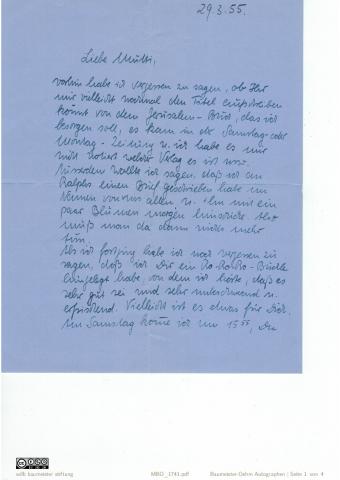 29.3.55.
Liebe Mutti,
vorhin habe ich vergessen zu sagen, ob Ihr
mir vielleicht nochmal den Titel aufschreiben
könnt von dem Jerusalem-Buch, das ich
besorgen soll, es kam in der Samstag- oder
Montag-Zeitung u. ich habe es mir
nicht notiert welcher Verlag es ist usw.
Ausserdem wollte ich sagen, daß ich an
Ralphs einen Brief geschrieben habe im
Namen von uns allen u. ihn mit ein
paar Blumen morgen hinschicke. Also
muß man da dann nichts mehr
tun.
Als ich fortging habe ich noch vergessen zu
sagen, daß ich Dir ein
habe, von dem ich hörte, daß es
sehr gut sei und sehr u.
erfrischend. Vielleicht ist es etwas für Dich.
Am Samstag komme ich um 15⁵⁵,
willi baumeister stiftung
MBO_1741.pdf
Baumeister-Oehm Autographen | Seite 1 von 4